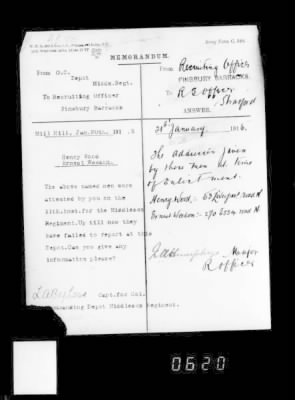 Army Form C. 348.
MEMORANDUM.
From O.C.
Depot
Middx. Regt.
To Recruiting Officer
Finsbury Barracks
Mill Hill, Jan. 20th. 191
Henry Wood
Ernest
The above named men were
attested by you on the
11th. inst. for the Middlesex
Regiment. Up till now they
have failed to report at this
Depot. Can you give any
information please?
Capt. for Col.
Commanding Depot Middlesex Regiment.
From Recruiting Officer
FINSBURY BARRACKS.
To R. Officer
Stratford
ANSWER.
21st January 1916.
The addresses given
by these men at time
of Enlistment.
Henry Wood
Ernest
Major
R officer
0620